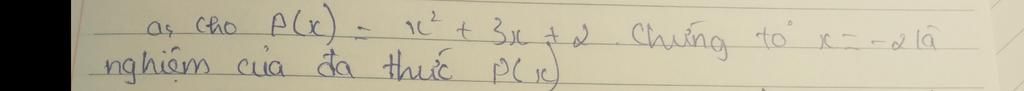 a, cho P(x) = x² + 3x + 2. Chứng tỏ x = -2 là
nghiệm của đa thức P(x)